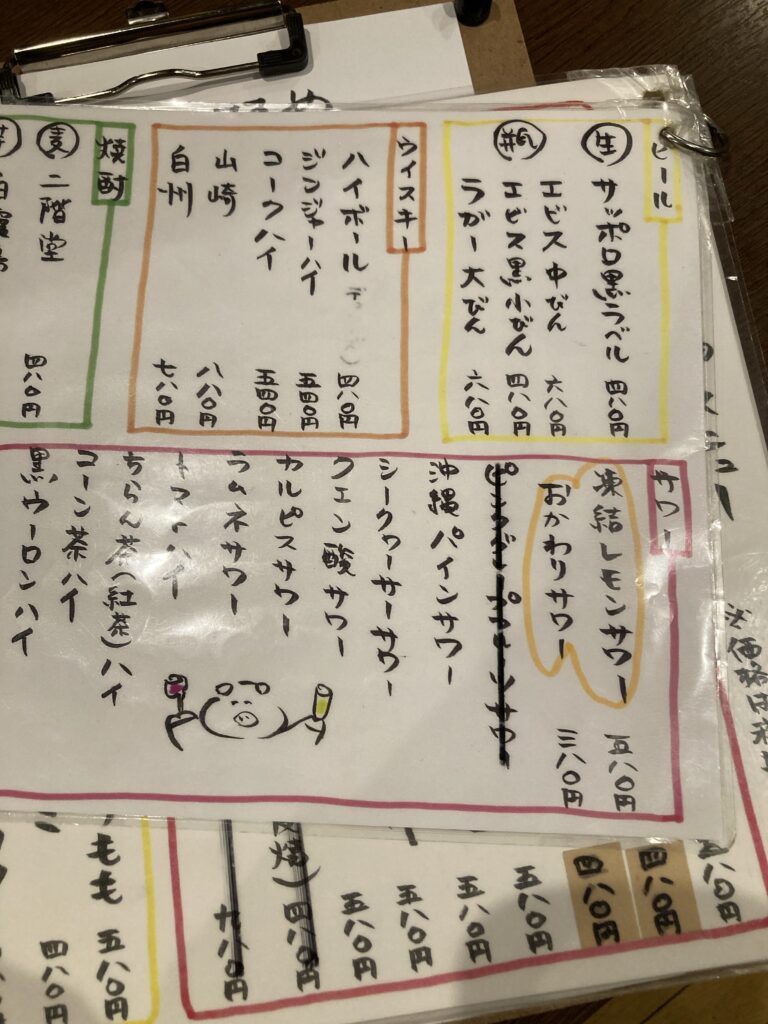 ビール
生 サッポロ黒ラベル 四八〇円
瓶 エビス中びん 六八〇円
エビス黒小びん 四八〇円
ラガー大びん 六八〇円
ウイスキー
ハイボール 四八〇円
ジンジャーハイ 五四〇円
コークハイ 五四〇円
山崎 八八〇円
白州 七八〇円
焼酎
麦 二階堂 四八〇円
サワー
凍結レモンサワー 五八〇円
おかわりサワー 三八〇円
沖縄パインサワー
シークヮーサーサワー
クエン酸サワー
カルピスサワー
ラムネサワー
トマトハイ
ちらん茶(紅茶)ハイ
コーン茶ハイ
黒ウーロンハイ
※価格は
四八〇円
四八〇円
四八〇円
五八〇円
五八〇円
五八〇円
五八〇円
焼) 四八〇円
八〇円
もも 五八〇円
四八〇円